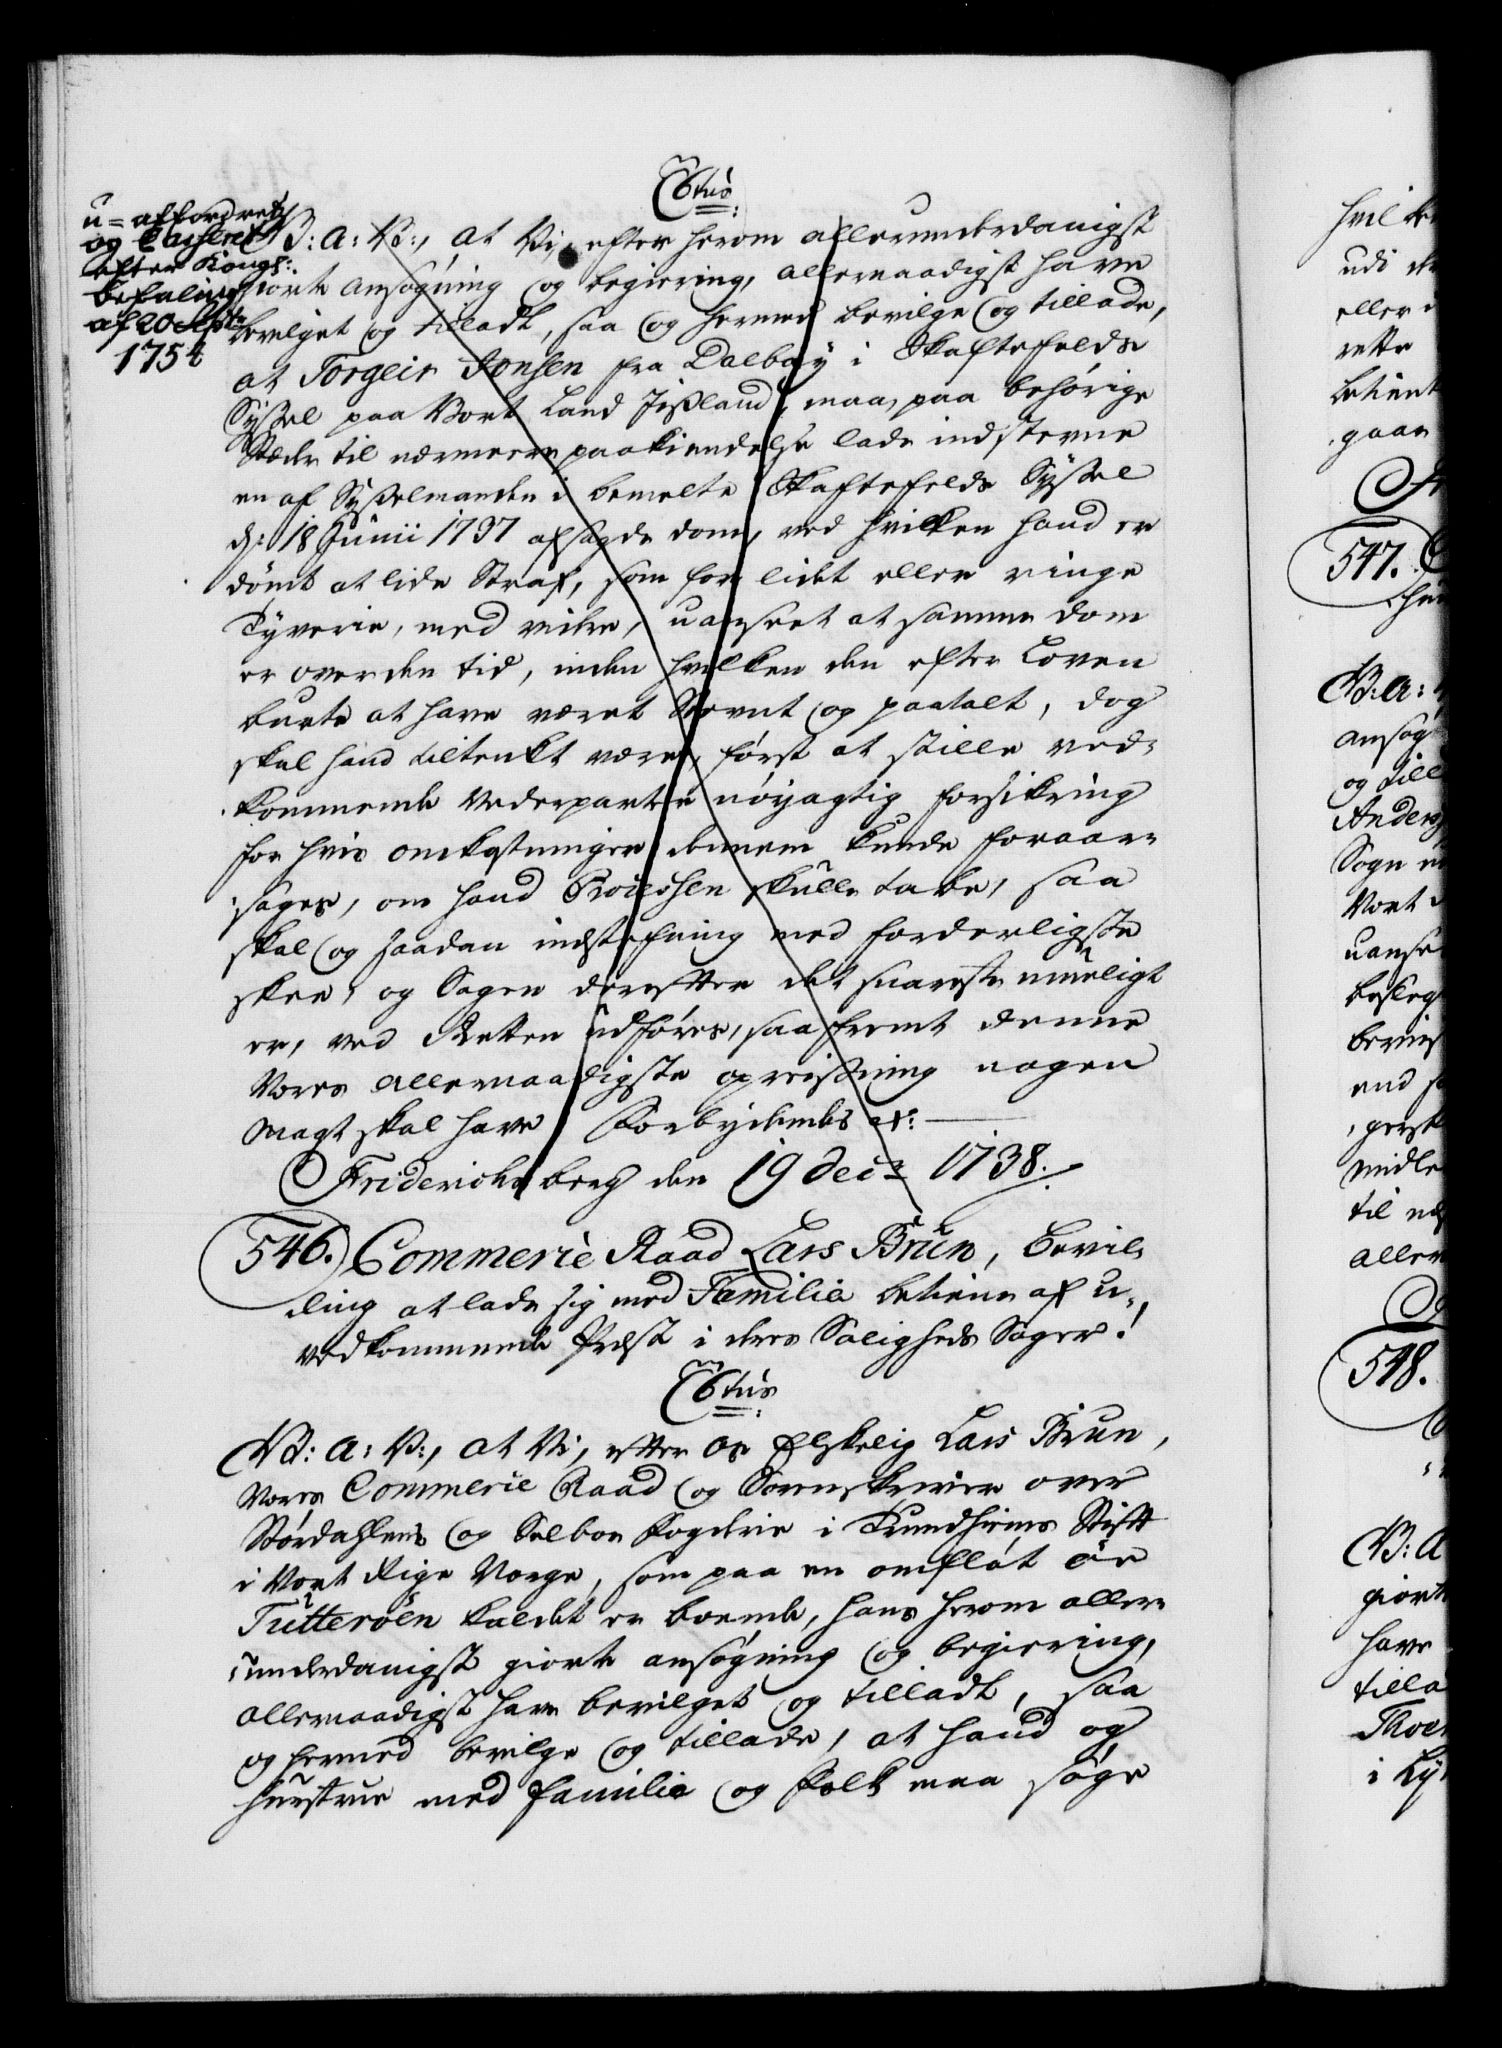 C6tus
u-affordret
og Casseret
efter Kongl:
befaling
af 20 Sept:
1754
V: A: V:, at Vi, efter herom allerunderdanigst
giorte ansøgning og begiering, allernaadigst have
bevilget og tilladt, saa og hermed bevilge og tillade,
at Torgeir Jonsen fra Dalbøy i Skaftefelds
Sÿssel paa Vort Land Jißland, maa paa behörige
Stæder til nærmere paakiendelse lade indstevne
en af Sysselmanden i bemelte Skaftefelds Sÿssel
d: 18 Junii 1737 afsagde dom, ved hvilken hand er
dömt at lide Straf, som for lidet eller ringe
Tyverie, med videre, uanseet at samme dom
er over den tid, inden hvilken den efter Loven
burte at have været Stevnt og paatalt, dog
skal hand tiltenkt være, først at stille ved-
kommende Vederparter nöyagtig forsikring
for hvis omkostninger dennem kunde foraar-
sages, om hand Processen skulle tabe, saa
skal og saadan indstefning med forderligste
skee, og Sagen derefter det snareste mueligt
er, ved Retten udføres, saafremt denne
Vores allernaadigste opreisning nogen
Magt skal have Forbydendes etc:
Friderichsberg den 19 decr 1738.
546. Commerie Raad Lars Brun, bevil-
ling at lade sig med Familie betiene af u-
vedkommende Præst i deres Saligheds Sager.
C6tus
V: A: V:, at Vi, efter os Elskelig Lars Brun,
Vores Commerie Raad og Sorenskriver over
Størdahlens og Selboe Fogderie i Trundhiems Stift
i Vort Rige Norge, som paa en omflöt öe
Tutteröen kaldet er boende, hans herom aller-
underdanigst giorte ansögning og begiering,
allernaadigst have bevilget og tilladt, saa
og hermed bevilge og tillade, at hand og
hustrue med familie og folk maa søge
547.
V: A:
ansøg
og till
Anders
Sogn
Vort
uanse
548.
V: A
giort
have
tilla